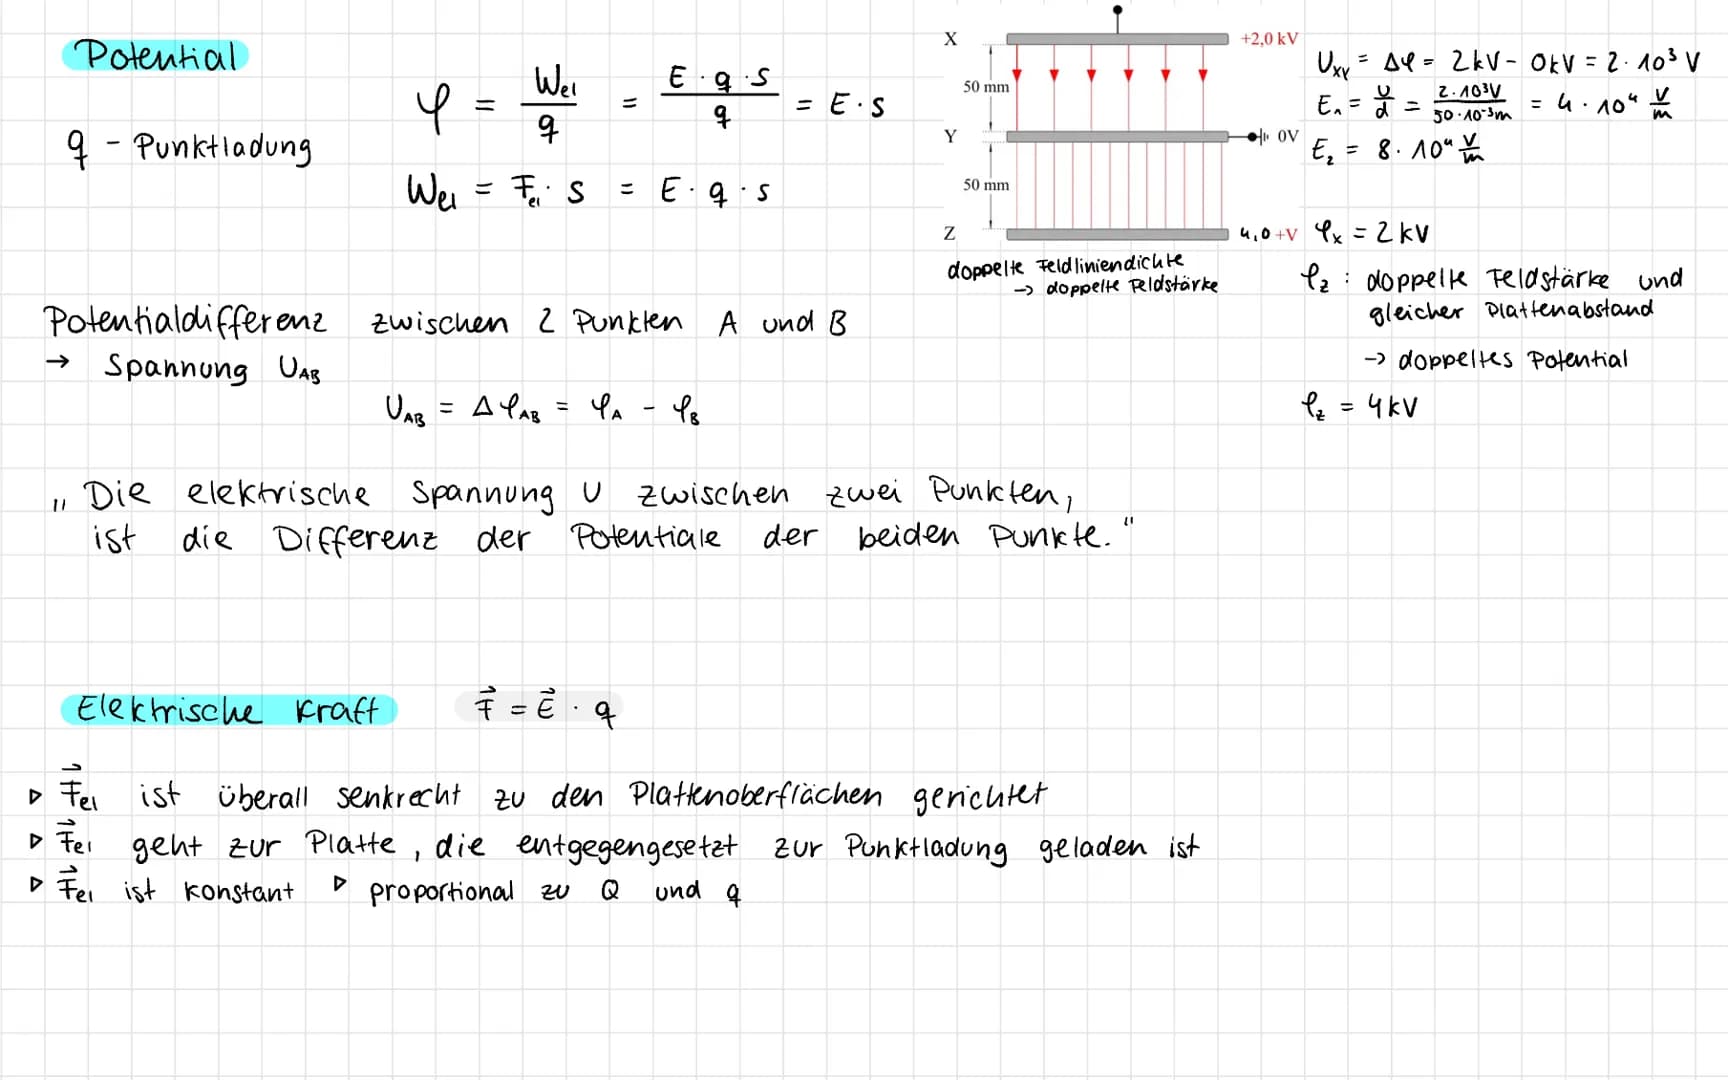 Potential
q - Punktladung
φ = Wel / q = E · q · s / q = E · s
Wel = Fel · s = E · q · s
X
+2,0 kV
50 mm
Y
0V
50 mm
Z
4,0 +V
doppelte Feldliniendichte
→ doppelte Feldstärke
UXY = Δφ = 2kV - 0kV = 2 · 10³ V
E₁ = U/d = 2·10³V / 50·10⁻³m = 4 · 10⁴ V/m
E₂ = 8 · 10⁴ V/m
φx = 2 kV
φz : doppelte Feldstärke und
gleicher Plattenabstand
→ doppeltes Potential
φz = 4kV
Potentialdifferenz zwischen 2 Punkten A und B
→ Spannung UAB
UAB = ΔφAB = φA - φB
„Die elektrische Spannung U zwischen zwei Punkten,
ist die Differenz der Potentiale der beiden Punkte."
Elektrische Kraft F⃗ = E⃗ · q
▹ F⃗el ist überall senkrecht zu den Plattenoberflächen gerichtet
▹ F⃗el geht zur Platte, die entgegengesetzt zur Punktladung geladen ist
▹ F⃗el ist konstant ▹ proportional zu Q und q